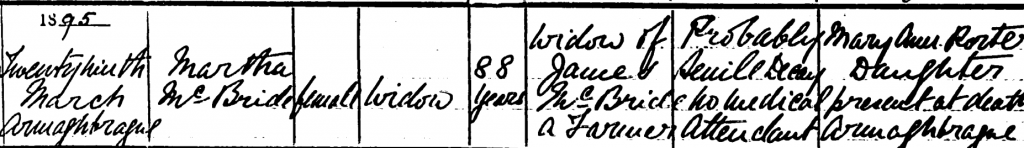 1895
Twentyninth
March
Armaghbrague
Martha
McBride
female
Widow
88
years
Widow of
James
McBride
a Farmer
Probably
Senile Decay
no medical
Attendant
Mary Ann Porter
Daughter
present at death
Armaghbrague